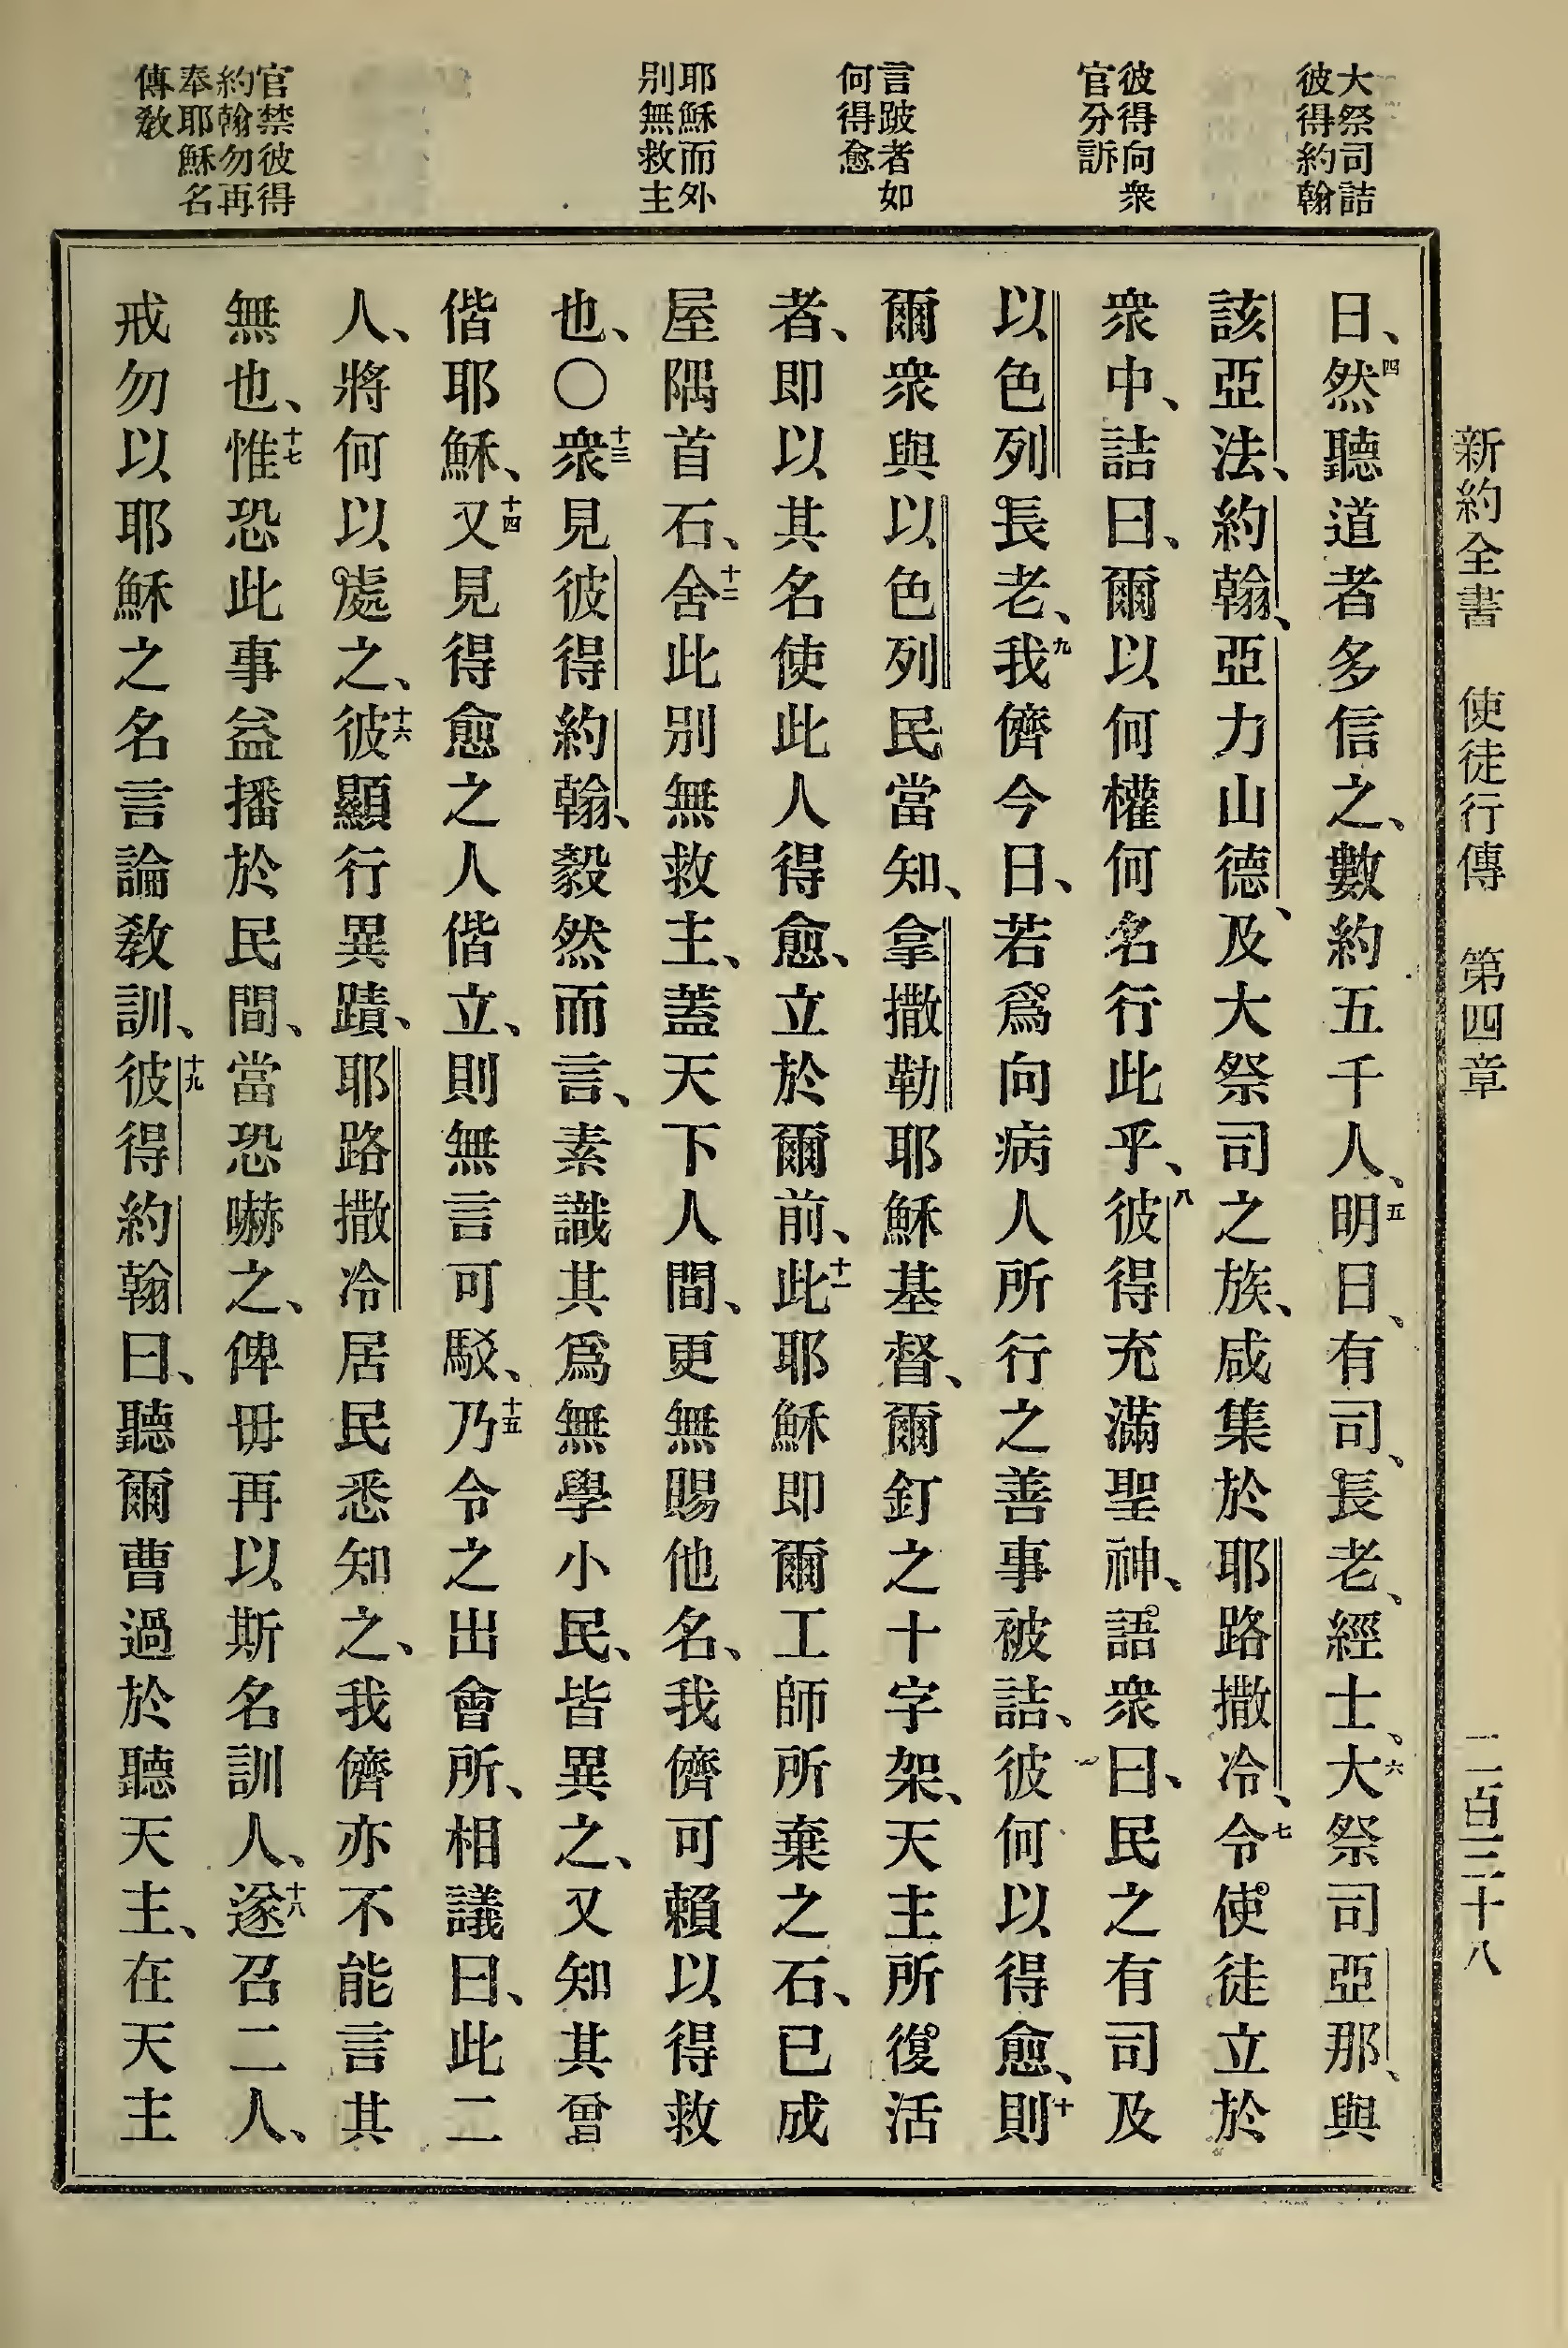 新約全書 使徒行傳 第四章 二百三十八
大祭司詰
彼得約翰
彼得向衆
官分訴
言跛者如
何得愈
耶穌而外
別無救主
官禁彼得
約翰勿再
奉耶穌名
傳敎
日、四然聽道者多信之、數約五千人、五明日、有司、長老、經士、六大祭司亞那、與
該亞法、約翰、亞力山德、及大祭司之族、咸集於耶路撒冷、七令使徒立於
衆中、詰曰、爾以何權何名行此乎、八彼得充滿聖神、語衆曰、民之有司及
以色列長老、九我儕今日、若爲向病人所行之善事被詰、彼何以得愈、十則
爾衆與以色列民當知、拿撒勒耶穌基督、爾釘之十字架、天主所復活
者、即以其名使此人得愈、立於爾前、十一此耶穌即爾工師所棄之石、已成
屋隅首石、十二舍此別無救主、蓋天下人間、更無賜他名、我儕可賴以得救
也、〇十三衆見彼得約翰、毅然而言、素識其爲無學小民、皆異之、又知其曾
偕耶穌、十四又見得愈之人偕立、則無言可駁、十五乃令之出會所、相議曰、此二
人、將何以處之、十六彼顯行異蹟、耶路撒冷居民悉知之、我儕亦不能言其
無也、十七惟恐此事益播於民間、當恐嚇之、俾毋再以斯名訓人、十八遂召二人、
戒勿以耶穌之名言論敎訓、十九彼得約翰曰、聽爾曹過於聽天主、在天主